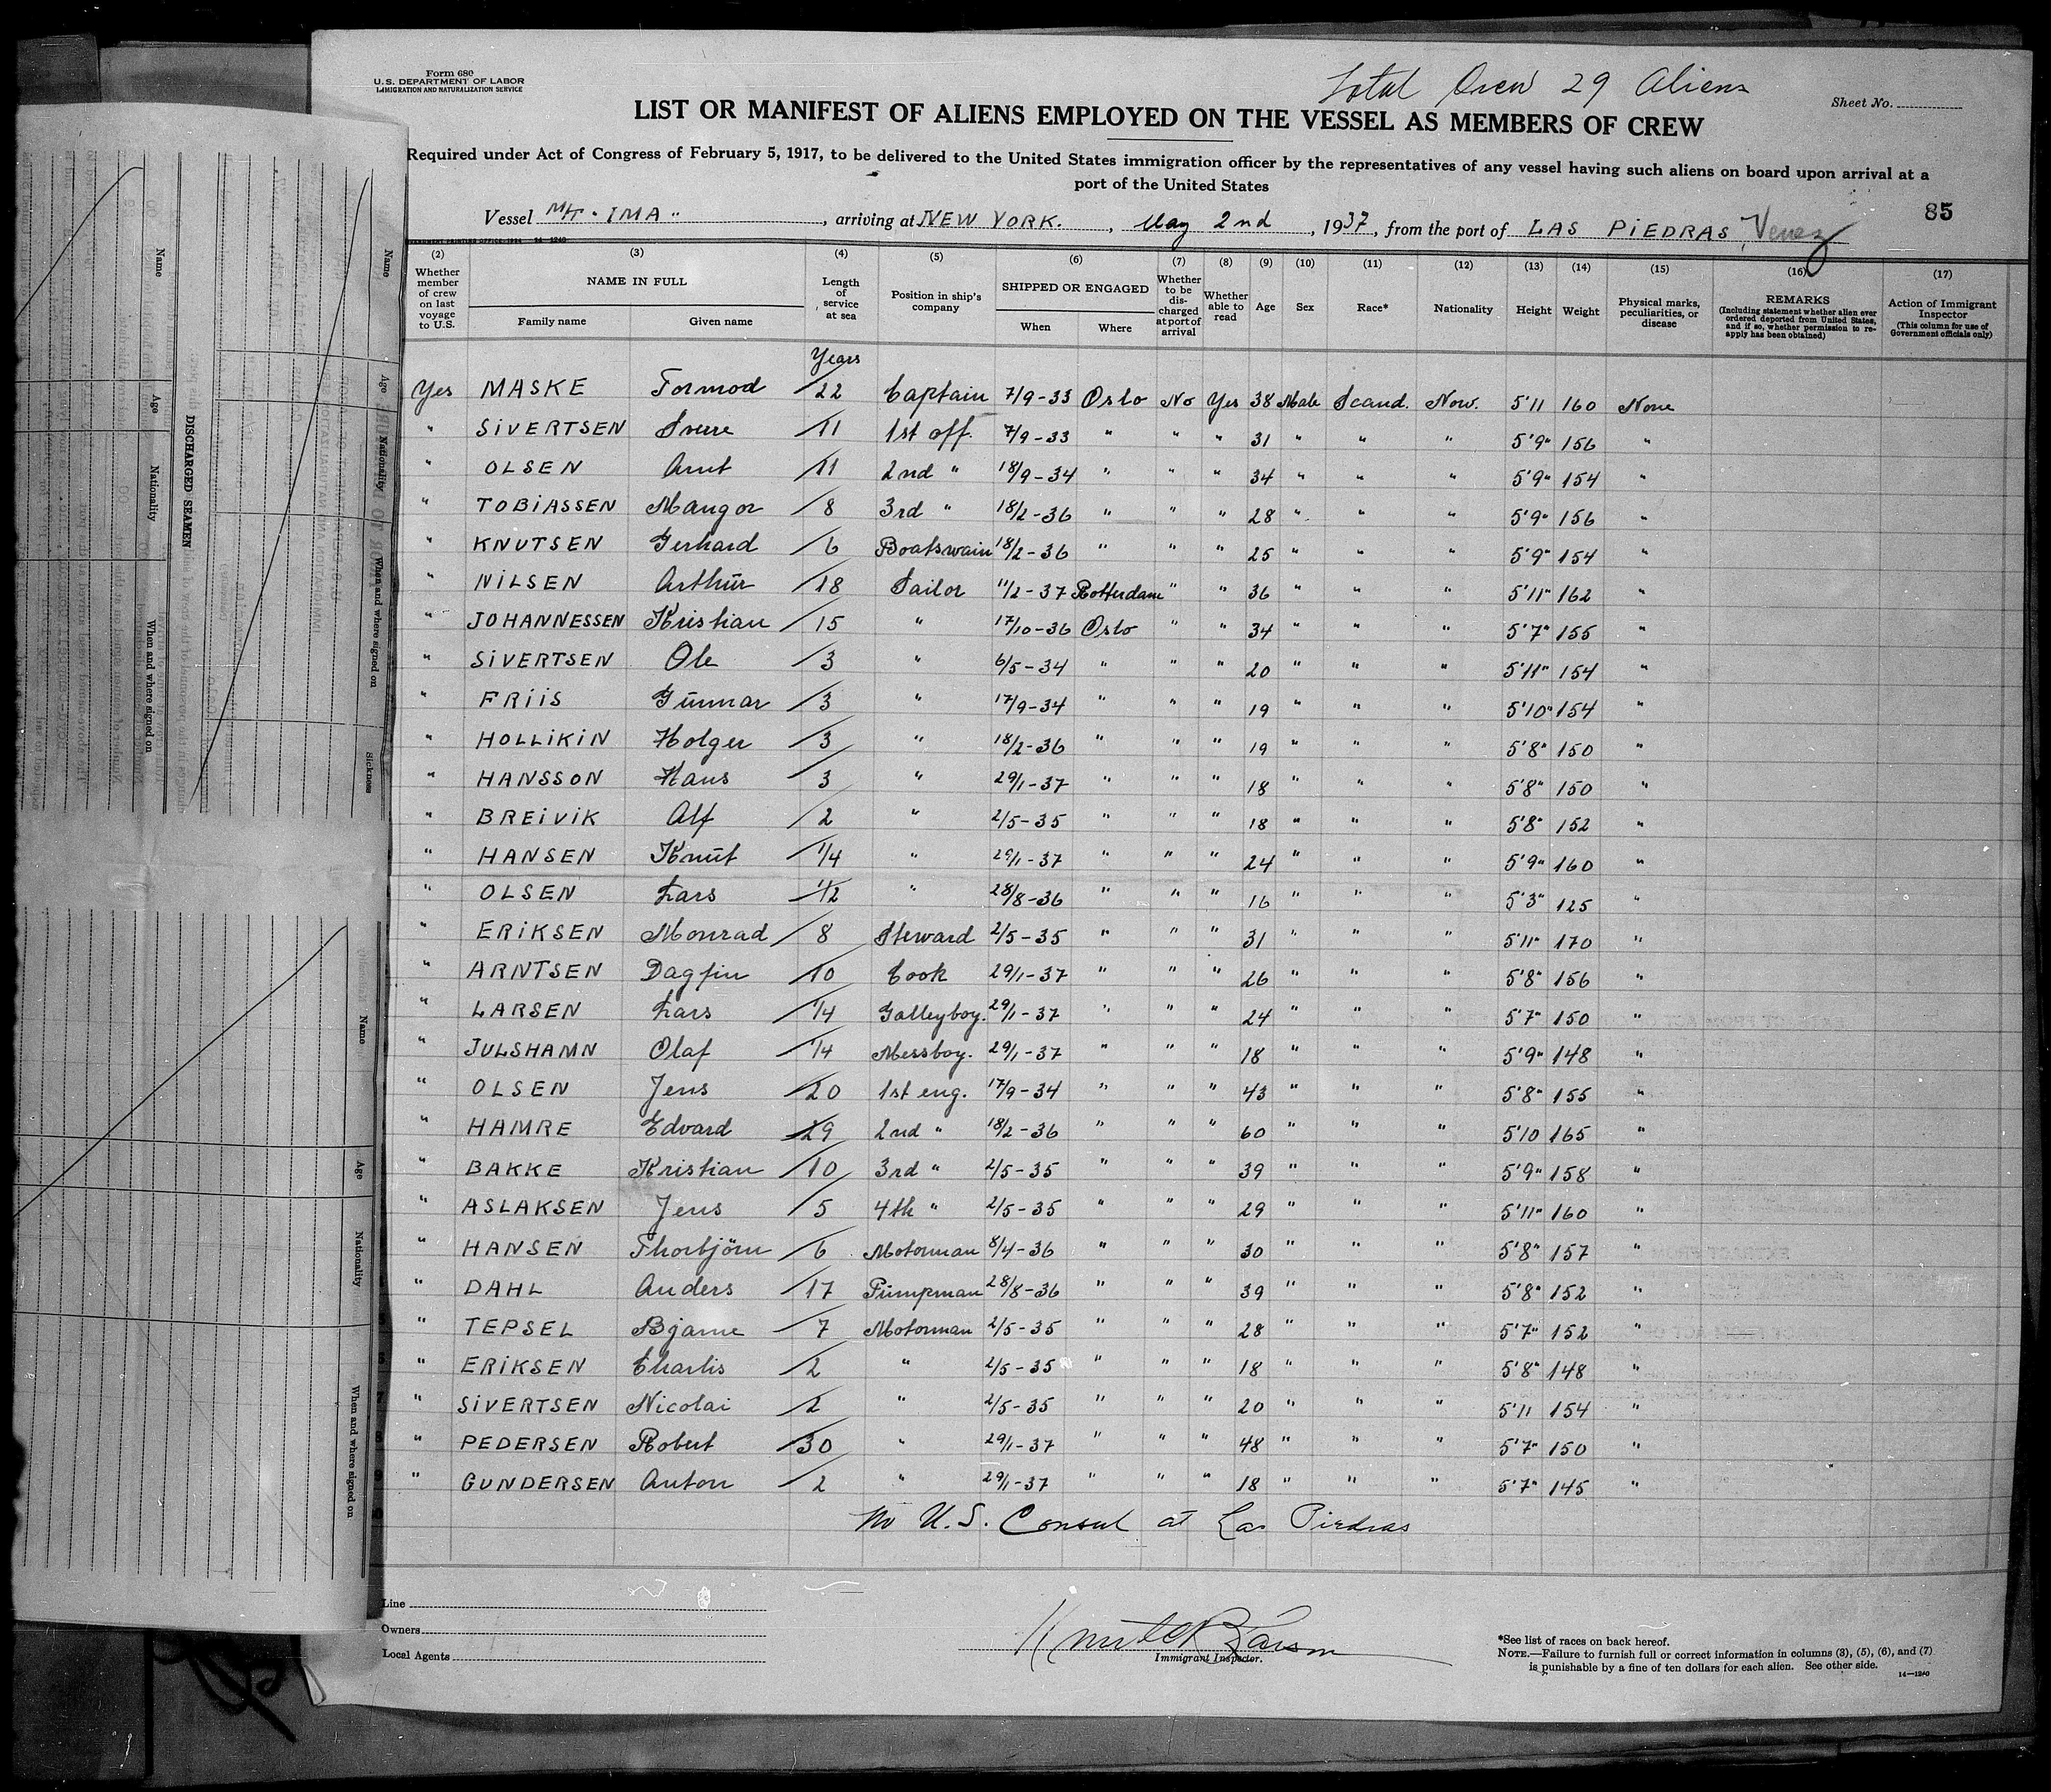 Form 680
U.S. DEPARTMENT OF LABOR
IMMIGRATION AND NATURALIZATION SERVICE
Total Crew 29 Aliens
Sheet No.
LIST OR MANIFEST OF ALIENS EMPLOYED ON THE VESSEL AS MEMBERS OF CREW
Required under Act of Congress of February 5, 1917, to be delivered to the United States immigration officer by the representatives of any vessel having such aliens on board upon arrival at a
port of the United States
85
Vessel M/T "IMA", arriving at NEW YORK., May 2nd, 1937, from the port of LAS PIEDRAS, Venez
(2) (3) (4) (5) (6) (7) (8) (9) (10) (11) (12) (13) (14) (15) (16) (17)
Whether member of crew on last voyage to U.S. NAME IN FULL Family name Given name Length of service at sea Position in ship's company SHIPPED OR ENGAGED When Where Whether to be discharged at port of arrival Whether able to read Age Sex Race* Nationality Height Weight Physical marks, peculiarities, or disease REMARKS (Including statement whether alien ever ordered deported from United States, and if so, whether permission to reapply has been obtained) Action of Immigrant Inspector (This column for use of Government officials only)
Years
Yes MASKE Tormod 22 Captain 7/9-33 Oslo No Yes 38 Male Scand. Now. 5'11 160 None
" SIVERTSEN Sverre 11 1st off. 7/9-33 " " " 31 " " " 5'9" 156 "
" OLSEN Arnt 11 2nd " 18/9-34 " " " 34 " " " 5'9" 154 "
" TOBIASSEN Mangor 8 3rd " 18/2-36 " " " 28 " " " 5'9" 156 "
" KNUTSEN Gerhard 6 Boatswain 18/2-36 " " " 25 " " " 5'9" 154 "
" NILSEN Arthur 18 Sailor 11/2-37 Rotterdam " " 36 " " " 5'11" 162 "
" JOHANNESSEN Kristian 15 " 17/10-36 Oslo " " 34 " " " 5'7" 155 "
" SIVERTSEN Ole 3 " 6/5-34 " " " 20 " " " 5'11" 154 "
" FRIIS Gunnar 3 " 17/9-34 " " " 19 " " " 5'10" 154 "
" HOLLIKIN Holger 3 " 18/2-36 " " " 19 " " " 5'8" 150 "
" HANSSON Hans 3 " 29/1-37 " " " 18 " " " 5'8" 150 "
" BREIVIK Alf 2 " 2/5-35 " " " 18 " " " 5'8" 152 "
" HANSEN Knut 1/4 " 29/1-37 " " " 24 " " " 5'9" 160 "
" OLSEN Lars 1/2 " 28/8-36 " " " 16 " " " 5'3" 125 "
" ERIKSEN Monrad 8 Steward 2/5-35 " " " 31 " " " 5'11" 170 "
" ARNTSEN Dagfin 10 Cook 29/1-37 " " " 26 " " " 5'8" 156 "
" LARSEN Lars 1/4 Galleyboy. 29/1-37 " " " 24 " " " 5'7" 150 "
" JULSHAMN Olaf 1/4 Messboy. 29/1-37 " " " 18 " " " 5'9" 148 "
" OLSEN Jens 20 1st eng. 17/9-34 " " " 43 " " " 5'8" 155 "
" HAMRE Edvard 29 2nd " 18/2-36 " " " 60 " " " 5'10 165 "
" BAKKE Kristian 10 3rd " 2/5-35 " " " 39 " " " 5'9" 158 "
" ASLAKSEN Jens 5 4th " 2/5-35 " " " 29 " " " 5'11" 160 "
" HANSEN Thorbjörn 6 Motorman 8/4-36 " " " 30 " " " 5'8" 157 "
" DAHL Anders 17 Pumpman 28/8-36 " " " 39 " " " 5'8" 152 "
" TEPSEL Bjarne 7 Motorman 2/5-35 " " " 28 " " " 5'7" 152 "
" ERIKSEN Charlis 2 " 2/5-35 " " " 18 " " " 5'8" 148 "
" SIVERTSEN Nicolai 2 " 2/5-35 " " " 20 " " " 5'11 154 "
" PEDERSEN Robert 30 " 29/1-37 " " " 48 " " " 5'7" 150 "
" GUNDERSEN Anton 2 " 29/1-37 " " " 18 " " " 5'7" 145 "
No U.S. Consul at Las Piedras
Line
Owners
Local Agents
Immigrant Inspector.
*See list of races on back hereof.
NOTE.—Failure to furnish full or correct information in columns (3), (5), (6), and (7)
is punishable by a fine of ten dollars for each alien. See other side.
14—1240
Name Age Nationality When and where signed on
DISCHARGED SEAMEN
Name Age Nationality When and where signed on Sickness
Name Age Nationality When and where signed on